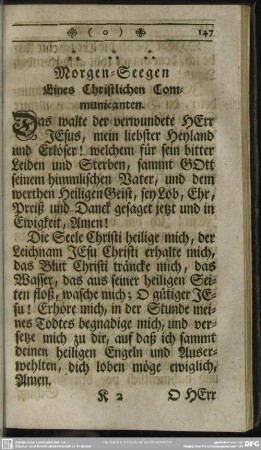 ( o ) 147
Morgen-Seegen
Eines Christlichen Com-
municanten.
Das walte der verwundete HErr
JEsus, mein liebster Heyland
und Erlöser! welchem für sein bitter
Leiden und Sterben, sammt GOtt
seinem himmlischen Vater, und dem
werthen Heiligen Geist, sey Lob, Ehr,
Preiß und Danck gesaget jetzt und in
Ewigkeit, Amen!
Die Seele Christi heilige mich, der
Leichnam JEsu Christi erhalte mich,
das Blut Christi träncke mich, das
Wasser, das aus seiner heiligen Sei-
ten floß, wasche mich; O gütiger JE-
su! Erhöre mich, in der Stunde mei-
nes Todtes begnadige mich, und ver-
setze mich zu dir, auf daß ich sammt
deinen heiligen Engeln und Auser-
wehlten, dich loben möge ewiglich,
Amen.
K 2 O HErr